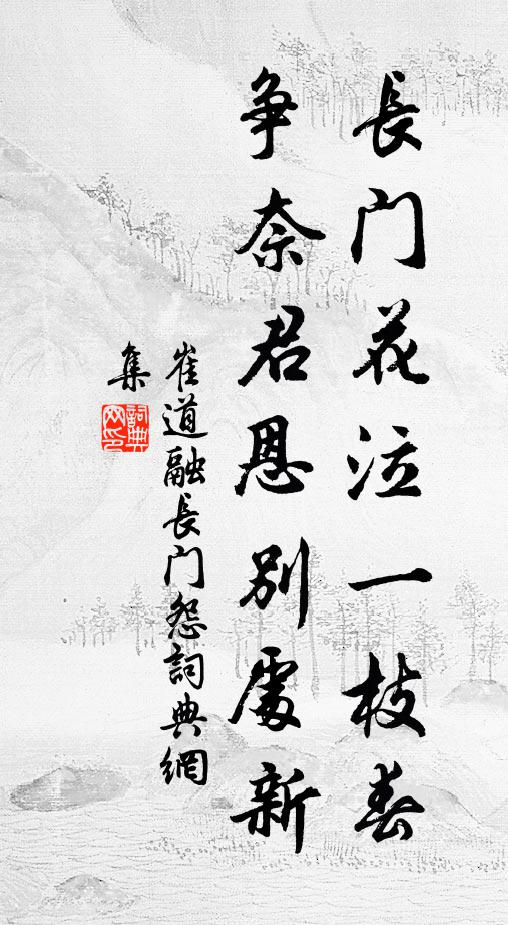 長门花泣一枝春
争奈君恩别處新
崔道融長门怨詞典網
集
詞典網印